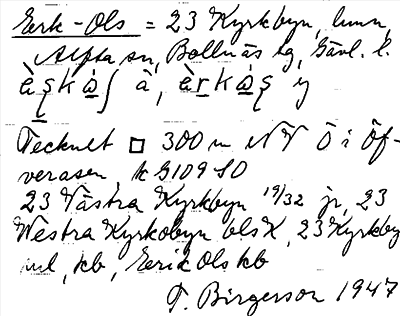 Eerk-Ols = 23 Kyrkbyn, hmn,
Alfta sn, Bollnäs tg, Gävl. l.
Tecknet □ 300 m NV Ö i Öf-
verasen k G109 SO
23 Västra Kyrkbyn 19/32 jr, 23
Westra Kyrkobyn ols K, 23 Kyrkby
ul, kb, Eerik Ols kb
T. Birgerson 1947